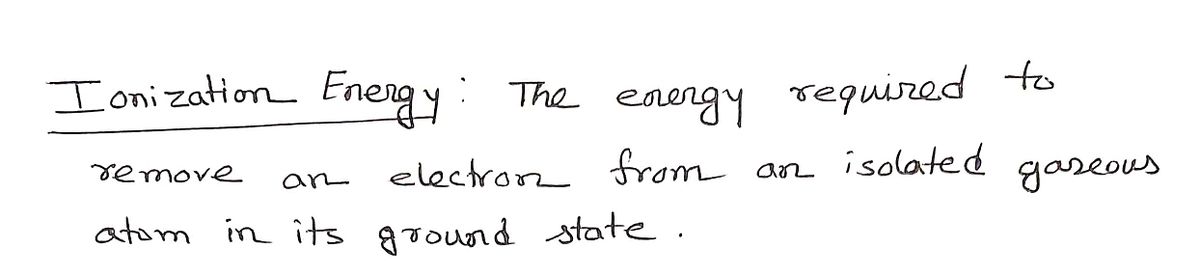 Ionization Energy: The energy required to
remove an electron from an isolated gaseous
atom in its ground state.